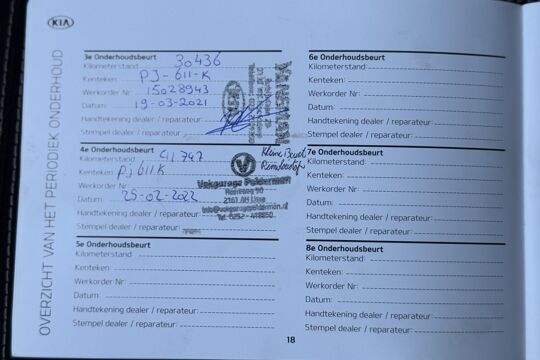 KIA
OVERZICHT VAN HET PERIODIEK ONDERHOUD
3e Onderhoudsbeurt
Kilometerstand 30436
Kenteken: PJ-611-K
Werkorder Nr: 15028943
Datum: 19-03-2021
Handtekening dealer / reparateur:
Stempel dealer / reparateur:
4e Onderhoudsbeurt
Kilometerstand 41747
Kenteken: PJ611K
Werkorder Nr:
Datum: 25-02-2022
Handtekening dealer / reparateur:
Stempel dealer / reparateur:
Kleine Beurt
Vakgarage
2161 AH Lisse
Tel. 0252 - 418850
5e Onderhoudsbeurt
Kilometerstand
Kenteken:
Werkorder Nr:
Datum:
Handtekening dealer / reparateur:
Stempel dealer / reparateur:
6e Onderhoudsbeurt
Kilometerstand
Kenteken:
Werkorder Nr:
Datum:
Handtekening dealer / reparateur:
Stempel dealer / reparateur:
7e Onderhoudsbeurt
Kilometerstand
Kenteken:
Werkorder Nr:
Datum:
Handtekening dealer / reparateur:
Stempel dealer / reparateur:
8e Onderhoudsbeurt
Kilometerstand
Kenteken:
Werkorder Nr:
Datum:
Handtekening dealer / reparateur:
Stempel dealer / reparateur:
18